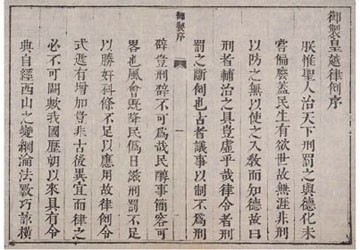 御製皇越律例序
朕惟聖人治天下刑罰之與德化未
嘗偏廢蓋民生有欲世故無涯非刑
以防之無以使之入教而知德故曰
刑者輔治之具豈虛乎哉律令者刑
罰之斷例也古者議事以制不為刑
御製序
一
辟豈刑辟不可為哉民醇事簡容可
畧也風會既降民偽日刑罰不足
以勝奸科條不足以應用故律例令
式遞有增加豈非古後異宜而律之
必不可闕歟我國歷朝以來具有令
典自經西山之變綱淪法斁巧詆橫